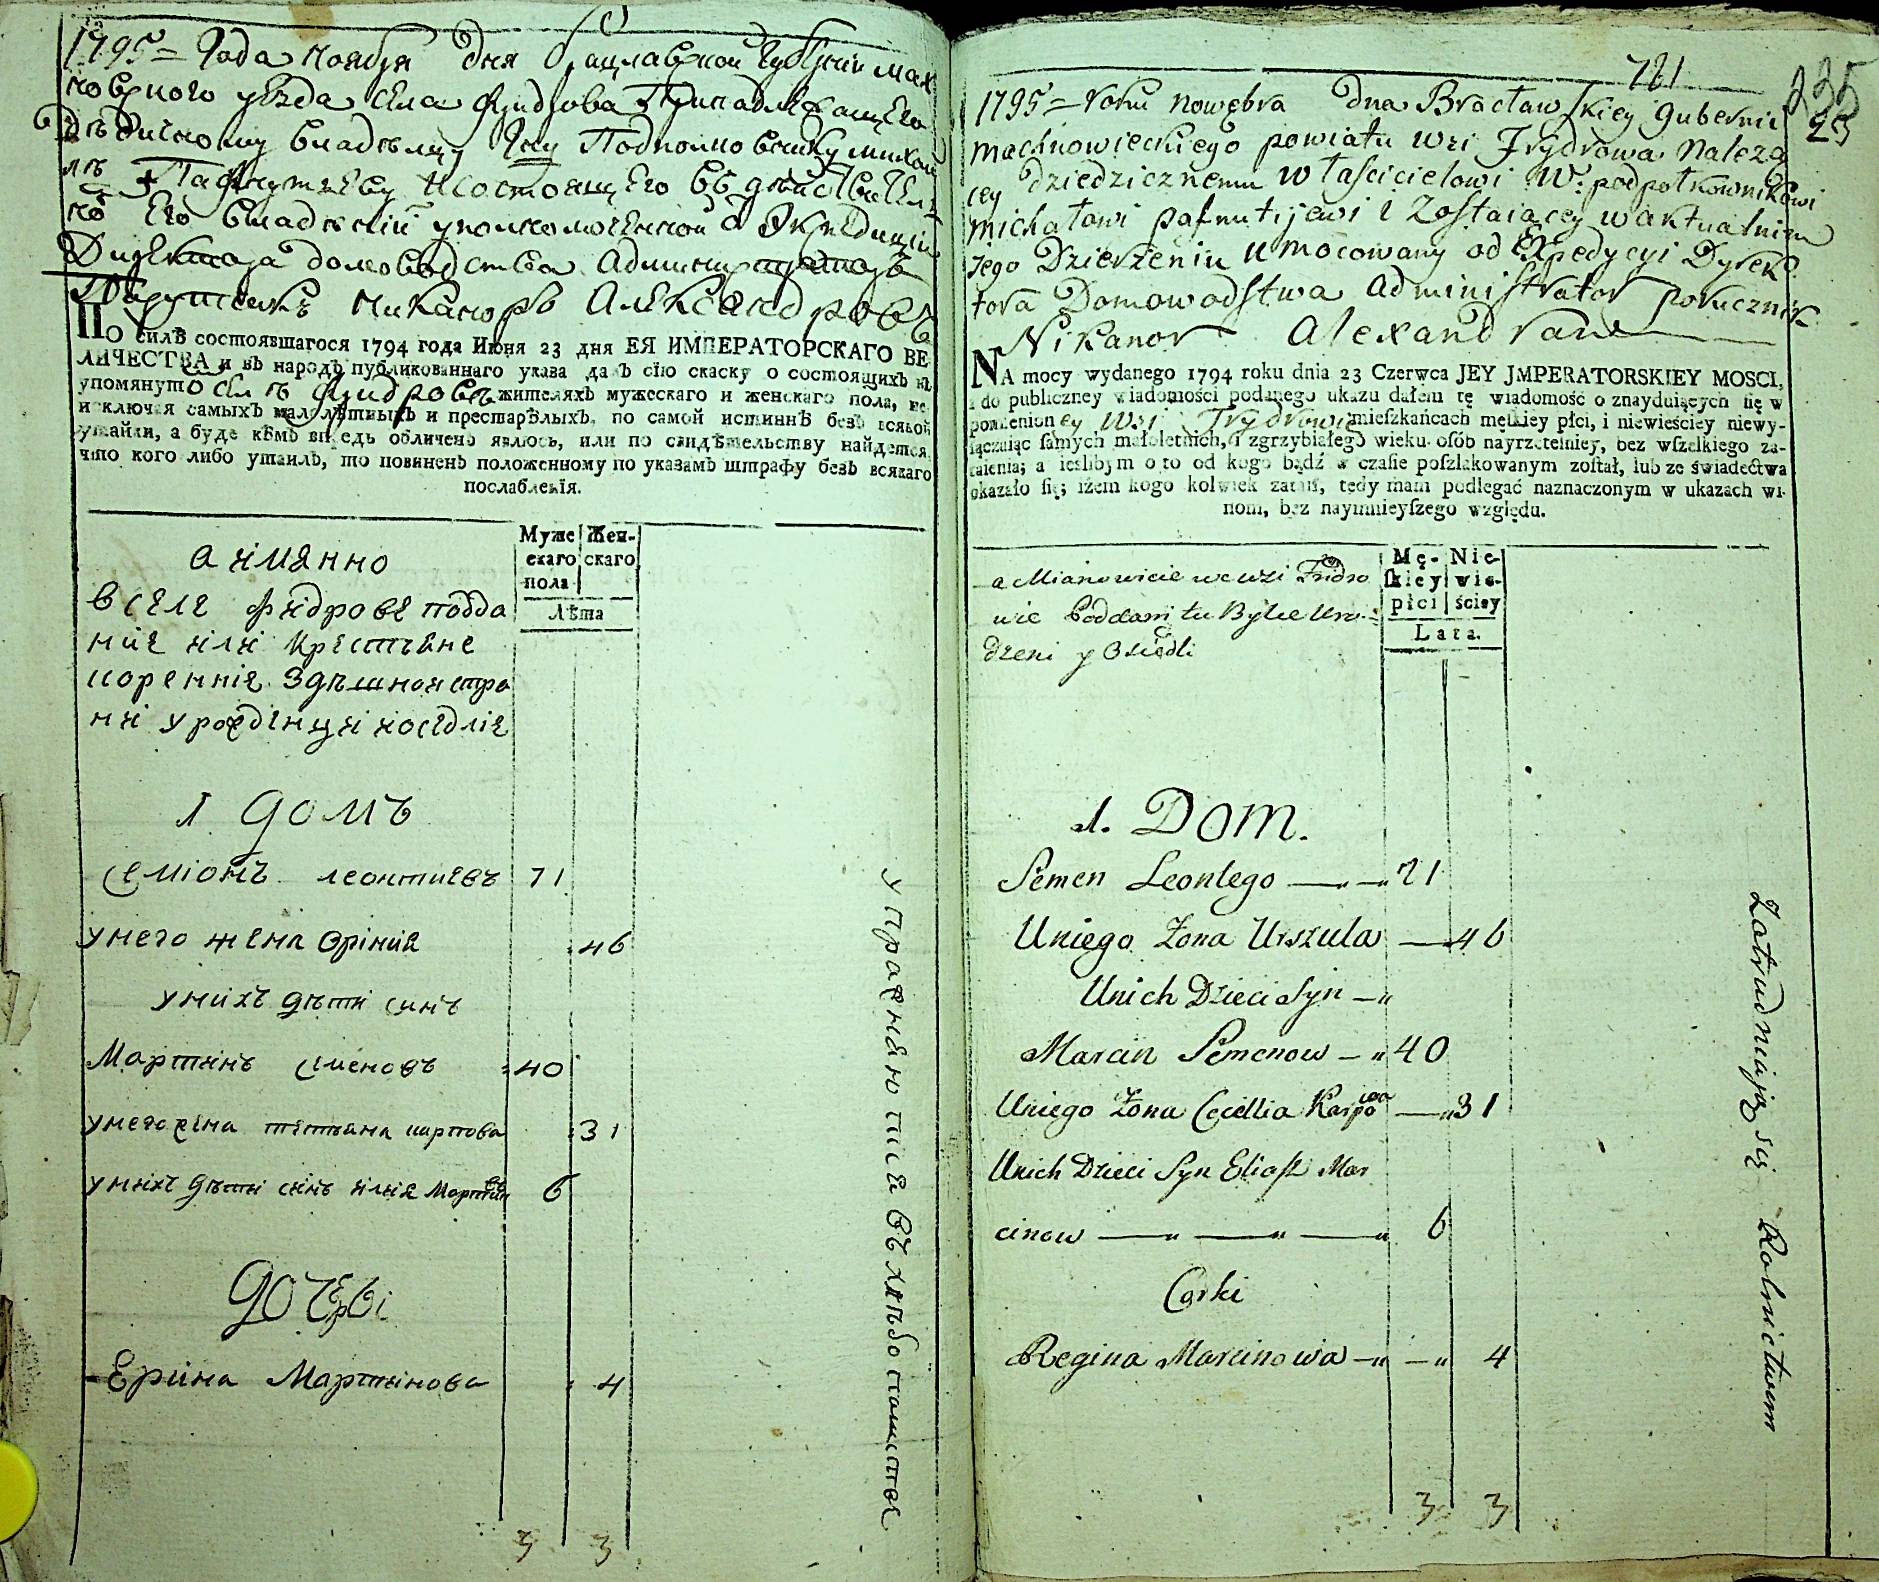 1795= Года Ноября дня Брацлавской Губернии Мах
новского уезда села Фридрова Принадлежащего
владельцу Подполковнику Михаи
лѣ Пафнутьеву И состоящего въ действитель
но его владении уполномоченной от Экспедиции
Директора домоводства Администраторъ
Порутчикъ Никаноръ Александровъ
ПО силѣ состоявшагося 1794 года Июня 23 дня ЕЯ ИМПЕРАТОРСКАГО ВЕ
ЛИЧЕСТВА и въ народъ публикованнаго указа далъ сію скаску о состоящихъ въ
упомянуто селѣ Фридровѣ жителяхъ мужескаго и женскаго пола, не
исключая самыхъ малолѣтныхъ и престарѣлыхъ, по самой истиннѣ безъ всякой
утайки, а буде кѣмъ впредь обличенъ явлюсь, или по свидѣтельству найдется
что кого либо утаилъ, то повиненъ положенному по указамъ штрафу безъ всякаго
послабленія.
а імянно
Муже
скаго
пола
Жен-
скаго
Лѣта
В селе Фридрове подда
ние или крестьяне
коренние здешной стра
ни уроженци и оседлие
1 домъ
Семіонъ Леонтиевъ 71
у него жена Оріния 46
у нихъ дети синъ
Мартинъ Сименовъ 40
у него жена Тетьяна Карпова 31
у нихъ дети синъ Илия Мартинъ 6
дочері
Ерина Мартинова 4
упражнаютися въ хлебопашестве
3 3
781
235
23
1795= roku Nowębra dna Bracław skiey Guberni
Machnowieckiego powiatu wsi Frydrowa Należą
cey dziedzicznemu właścicielowi W: podpołkownikowi
Michałowi Pafnutijewi i Zostaiącey w aktualnim
Jego Dzierżeniu umocowany od Expedycyi Dyrek
tora Domowodstwa Administrator porucznik
Nikanor Alexandrow
NA mocy wydanego 1794 roku dnia 23 Czerwca JEY JMPERATORSKIEY MOSCI,
i do publiczney wiadomości podanego ukazu dałem tę wiadomość o znayduiących się w
pomienioney Wsi Frydrowie mieszkańcach męskiey płci, i niewieściey niewy-
łączaiąc samych małoletnich, i zgrzybiałego wieku osób nayrzetelniey, bez wszelkiego za-
taienia; a ieslibym o to od kogo bądź w czasie poszlakowanym został, lub ze świadectwa
okazało się; iżem kogo kolwiek zataił, tedy mam podlegać naznaczonym w ukazach wi-
nom, bez naymnieyszego względu.
a Mianowicie we wsi Fridro
wie Poddani tu Bylce Uro=
dzeni y Osiedli
Mę-
skiey
płci
Nie-
wie-
ściey
Lata.
1. Dom.
Semen Leontego 71
U niego Żona Urszula 46
U nich Dzieci Syn
Marcin Semenow 40
U niego Żona Cecillia Karpowa 31
U nich Dzieci Syn Eliasz Mar
cinow 6
Corki
Regina Marcinowa 4
Zatrudniają się Rolnictwem
3 3